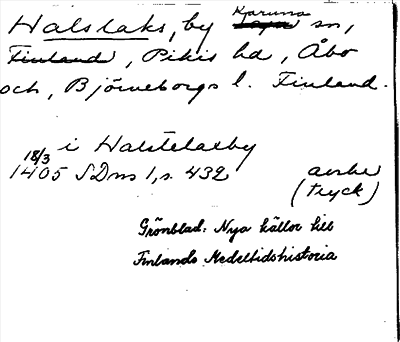 Halslaks, by Karuna sn,
Finland, Pikis hd, Åbo
och, Björneborgs l. Finland.
i Halstelaxby
18/3
1405 SDns 1, s. 432 avskr
(tryck)
Grönblad: Nya källor till
Finlands Medeltidshistoria